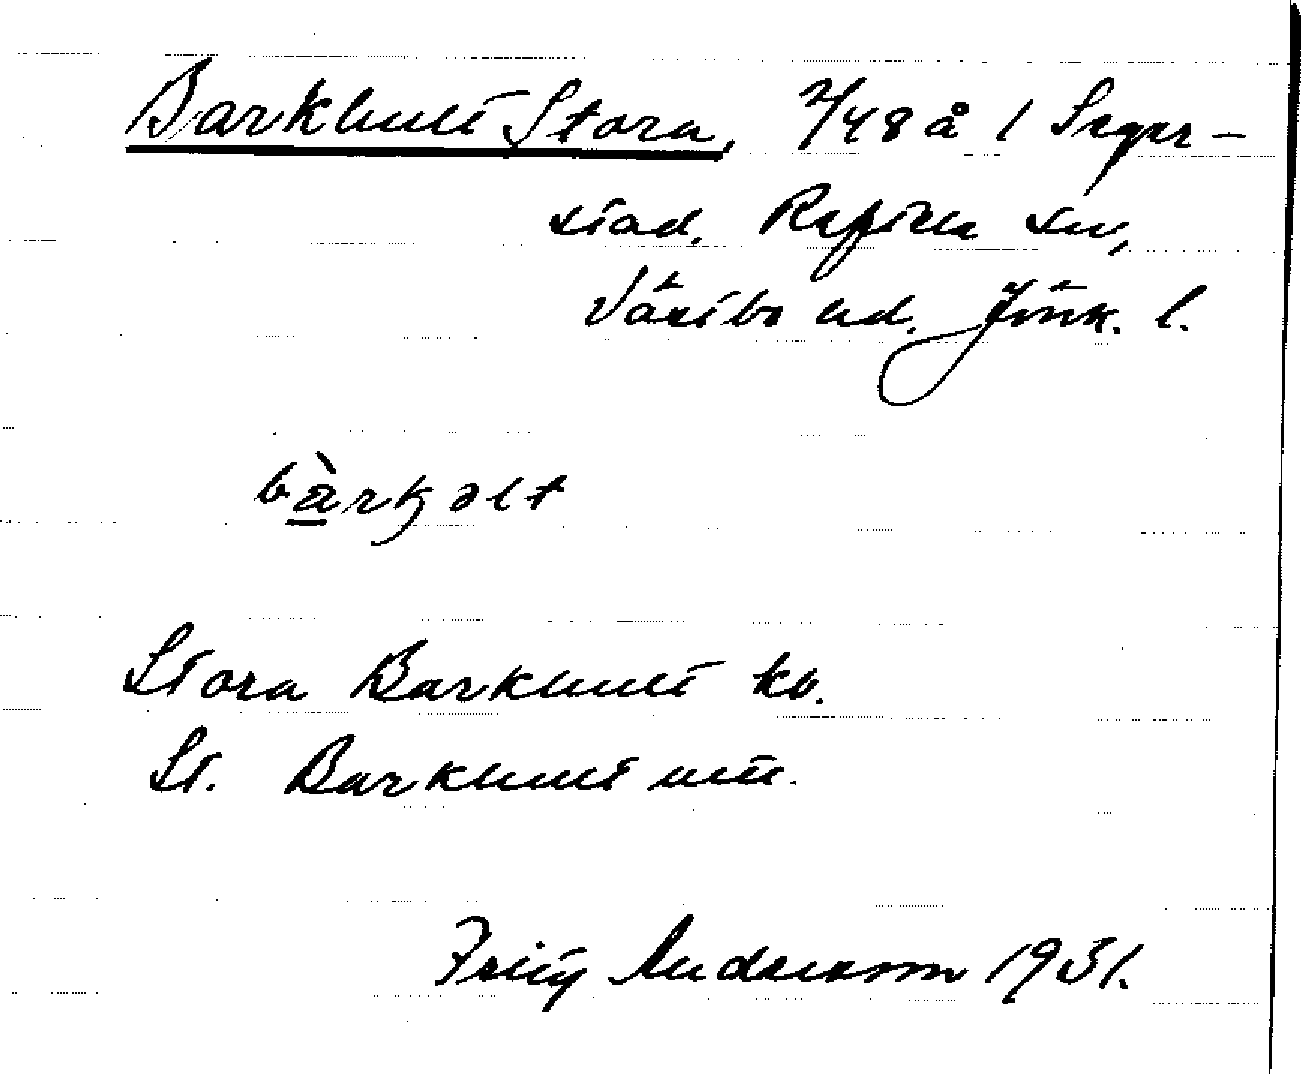 Barkhult Stora, 7/48 å 1 Seger-
stad, Reftele sn,
Västbo hd. Jönk. l.
bàrkəlt
Stora Barkhult kb.
St. Barkhult
Fritz Andersson 1931.